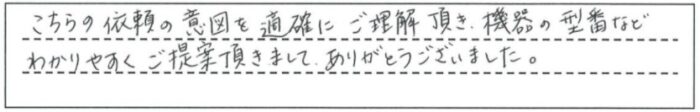 こちらの依頼の意図を適確にご理解頂き、機器の型番など
わかりやすくご提案頂きまして、ありがとうございました。